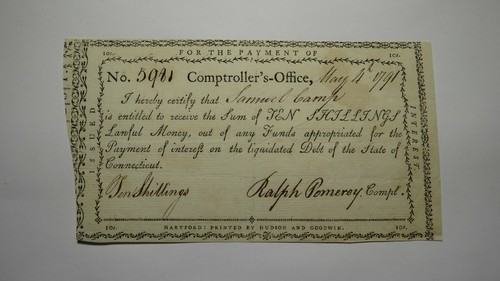 10s. FOR THE PAYMENT OF 10s.
No. 5981 Comptroller's-Office, May 4 1791
I hereby certify that Samuel Camp
is entitled to receive the Sum of TEN SHILLINGS
Lawful Money, out of any Funds appropriated for the
Payment of interest on the liquidated Debt of the State of
Connecticut.
Ten Shillings Ralph Pomeroy, Compl.
10s. HARTFORD: PRINTED BY HUDSON AND GOODWIN. 10s.
ISSUED
INTEREST